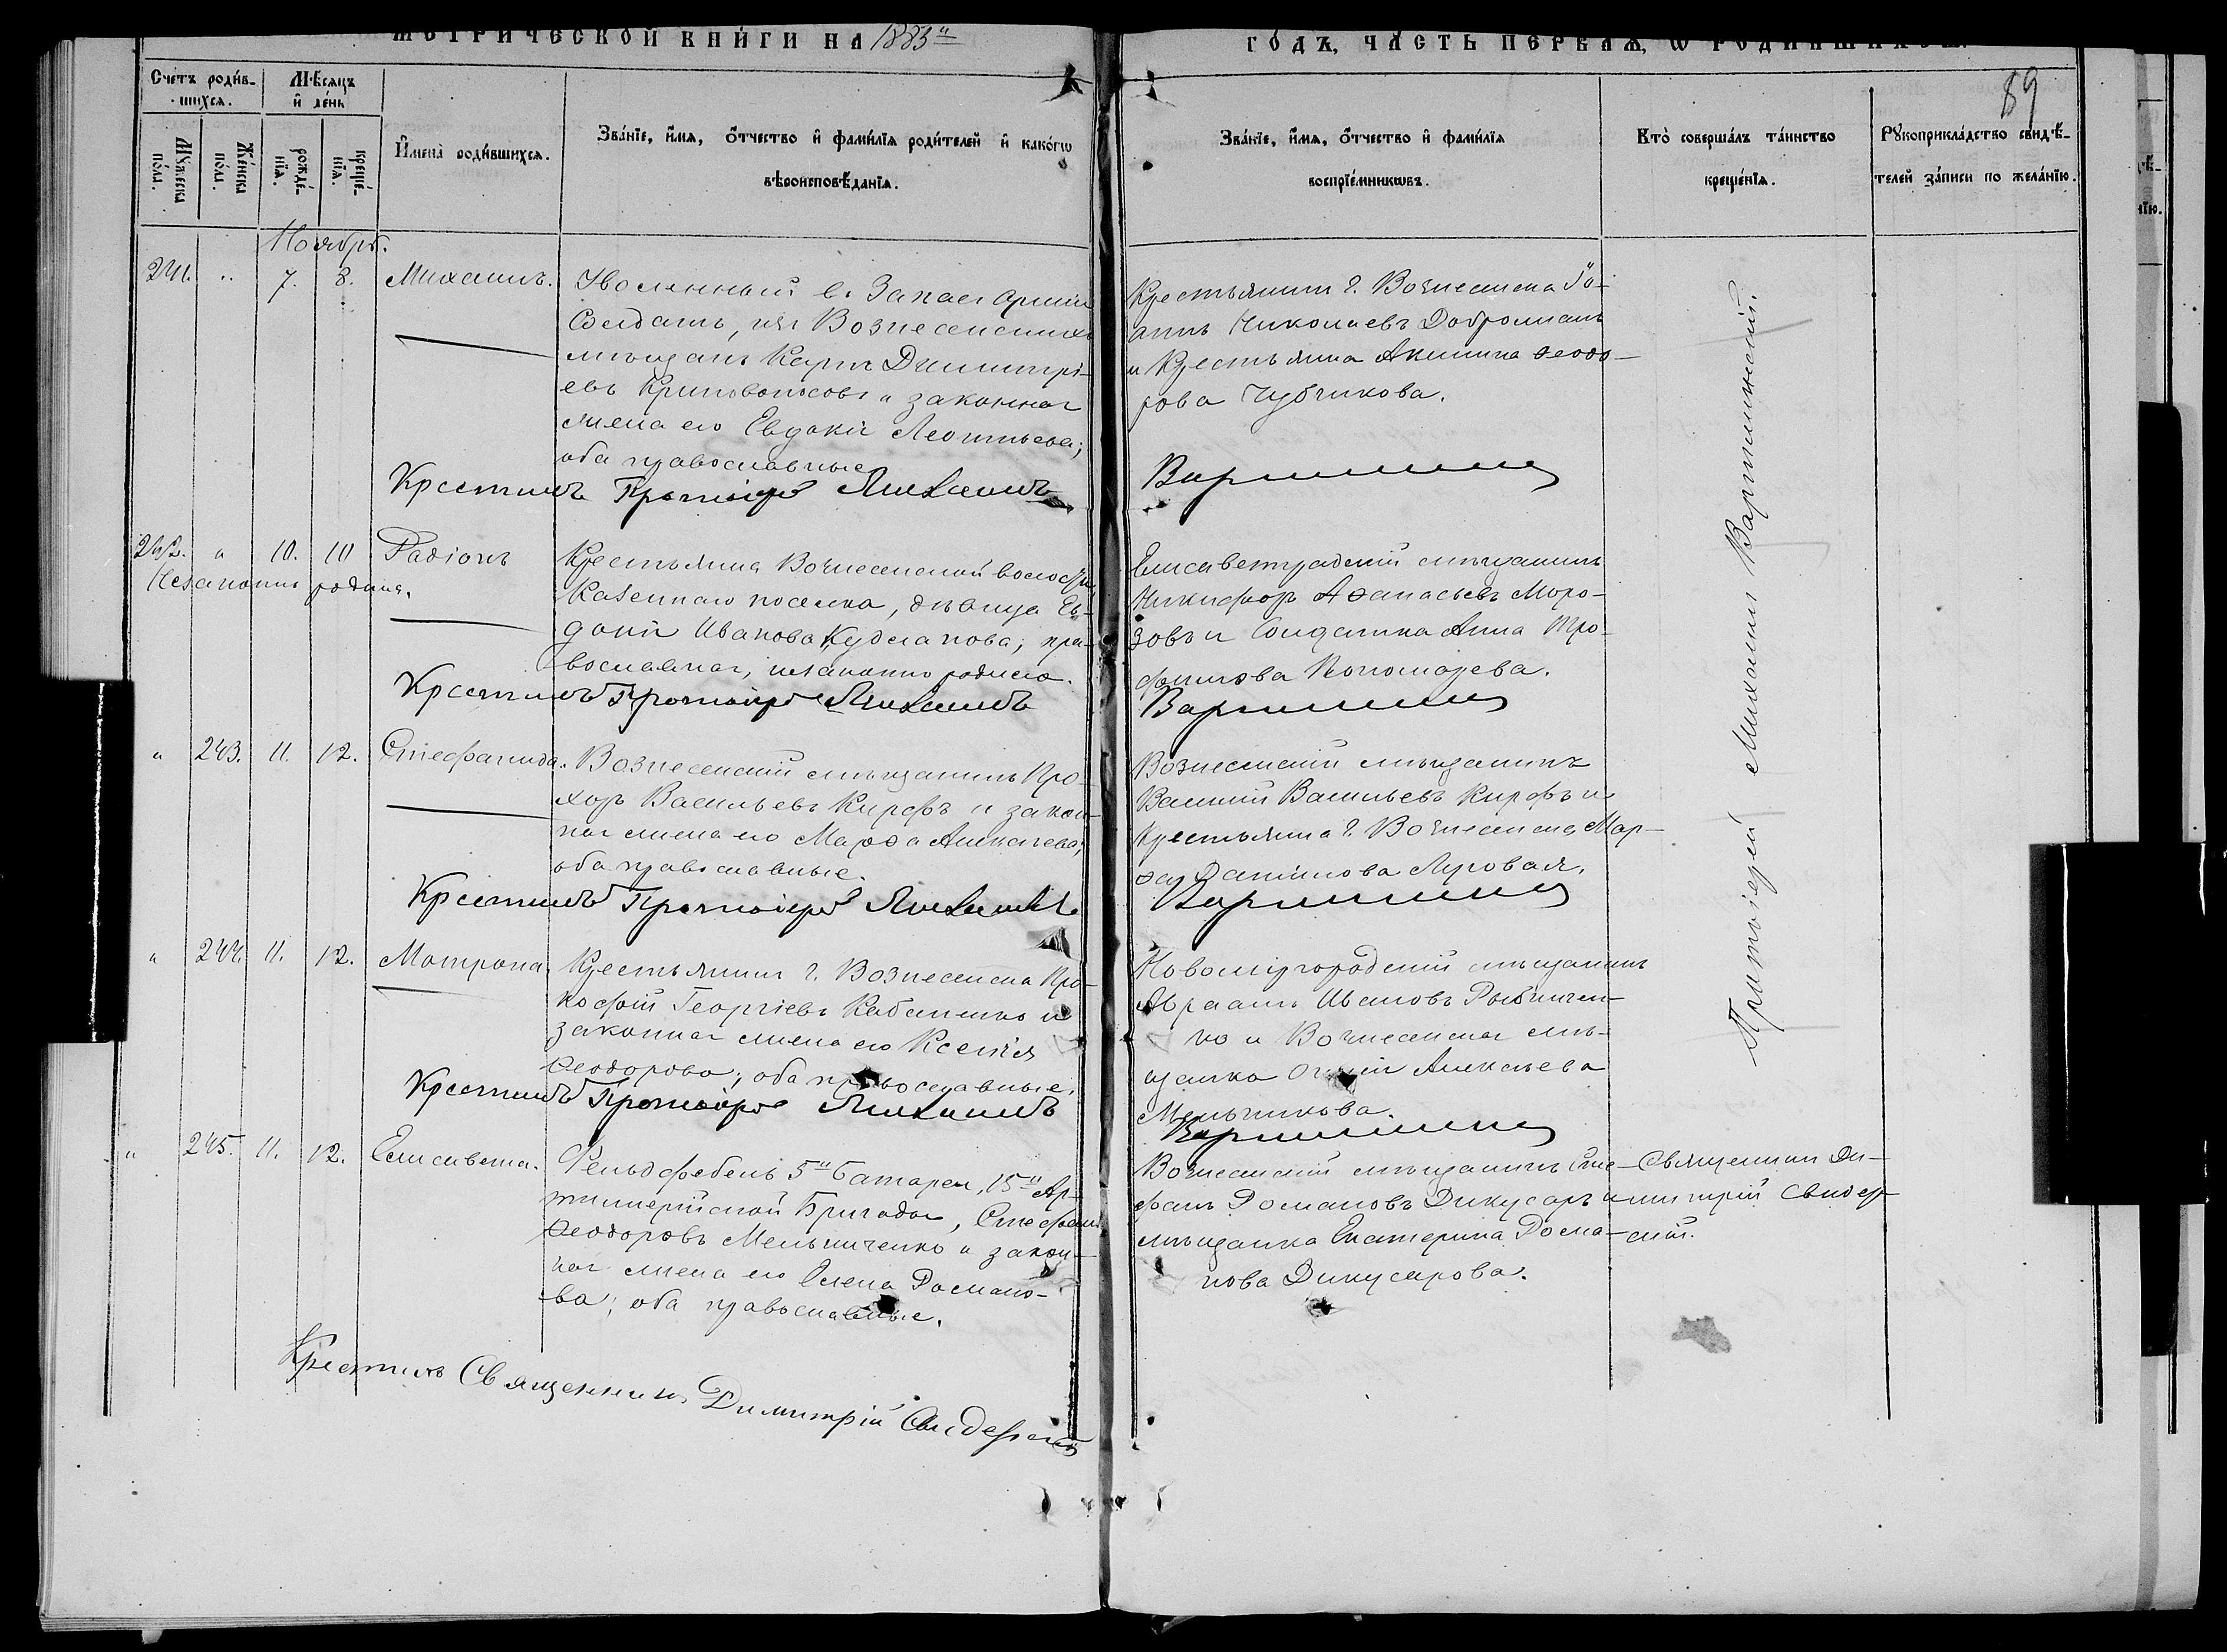 МЕТРИЧЕСКОЙ КНИГИ НА 1883й
ГОДЪ, ЧАСТЬ ПЕРВАЯ, Ѡ РОДИВШИХСЯ.
89
Счетъ родив-
шихся.
Мѣсяцъ
и день
Мꙋжеска
пола.
Женска
пола.
рожде-
нїя.
креще-
нїя.
Имена родившихся.
Званїе, имя, отчество и фамилїя родителей и какогѡ
вѣроисповѣданїя.
Званїе, имя, отчество и фамилїя
воспрїемникѡвъ.
Кто совершалъ таинство
крещенїя.
Рꙋкоприкладство свидѣ-
телей записи по желанїю.
Ноябрь.
241. " 7. 8. Михаилъ.
Уволенный въ Запасъ армiи
Солдатъ, изъ Вознесенскихъ
мѣщанъ Карпъ Димитрi-
евъ Кривоносовъ и законная
жена его Евдокiя Леонтьева;
оба православные
Крестилъ Протоiерей Михаилъ
Крестьянинъ г. Вознесенска Iо-
аннъ Николаевъ Доброшанъ
и Крестьянка Акилина Ѳеодо-
рова Чубчикова.
242. " 10. 10 Радiонъ
Незаконно родился.
Крестьянка Вознесенской волости
Казеннаго поселка, дѣвица Ев-
докiя Иванова Кудланова; пра-
вославная, незаконно родила.
Крестилъ Протоiерей Михаилъ
Елисаветградскiй мѣщанинъ
Никифоръ Аѳанасьевъ Моро-
зовъ и Солдатка Анна Тро-
фимова Пономарева.
" 243. 11. 12. Стефанида.
Вознесенскiй мѣщанинъ Про-
хоръ Васильевъ Кирфъ и закон-
ная жена его Марѳа Алексѣева;
оба православные.
Крестилъ Протоiерей Михаилъ
Вознесенскiй мѣщанинъ
Василiй Васильевъ Кирфъ и
Крестьянка г. Вознесенска Мар-
ѳа Данiилова Луговая.
" 244. 11. 12. Матрона
Крестьянинъ г. Вознесенска Про-
кофiй Георгiевъ Кабаненко и
законная жена его Ксенiя
Ѳеодорова; оба православные.
Крестилъ Протоiерей Михаилъ
Новомiргородскiй мѣщанинъ
Авраамъ Ивановъ Рыбничен-
ко и Вознесенская мѣ-
щанка Алексѣева
Мельникова.
" 245. 11. 12. Елисавета.
Фельдфебель 5й батареи, 15й Ар-
тиллерiйской Бригады, Стефанъ
Ѳеодоровъ Мельниченко и закон-
ная жена его Елена Романо-
ва; оба православные.
Крестилъ Священникъ Димитрiй Свидерскiй
Вознесенскiй мѣщанинъ Сте-
фанъ Романовъ Дикусаръ и
мѣщанка Екатерина Рома-
нова Дикусарова.
Священникъ Ди-
митрiй Свидер-
скiй.
Протоiерей Михаилъ